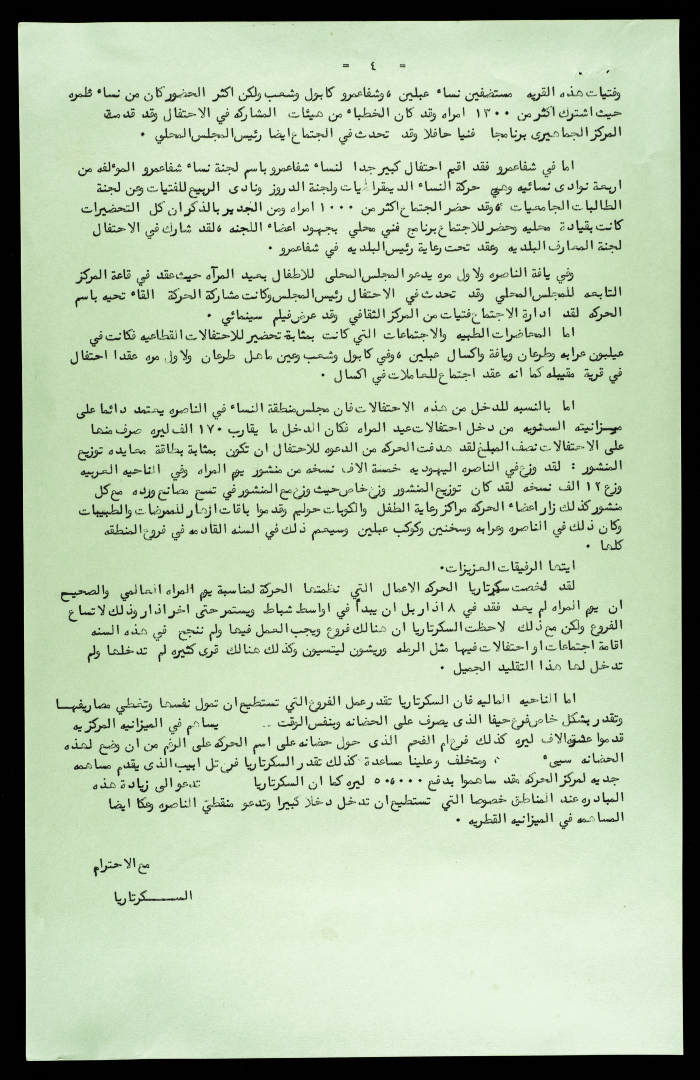 = ٤ =
وفتيات هذه القريه مستضفين نساء عبلين ،وشفاعمرو كابول وشعب ولكن اكثر الحضور كان من نساء طمره
حيث اشترك اكثر من ١٣٠٠ امراه وقد كان الخطباء من هيئات المشاركه في الاحتفال وقد قدمت
المركز الجماهيرى برنامجا فنيا حافلا وقد تحدث في الجتماع ايضا رئيس المجلس المحلي .
اما في شفاعمرو فقد اقيم احتفال كبير جدا لنساء شفاعمرو باسم لجنة نساء شفاعمرو الموٴلفه من
اربعة نوادى نسائيه وهي حركة النساء الديمقراطيات ولجنة الدروز ونادى الربيع للفتيات وعن لجنة
الطالبات الجامعيات ،وقد حضر الجتماع اكثر من ١٠٠٠ امراه ومن الجدير بالذكر ان كل التحضيرات
كانت بقيادة محليه وحضر للاجتماع برنامج فني محلي بجهود اعضاء اللجنه ،لقد شارك في الاحتفال
لجنة المعارف البلديه وعقد تحت رعاية رئيس البلديه في شفاعمرو .
وفي يافة الناصره ولاول مره يدعو المجلس المحلى للاطفال بعيد المرآه حيث عقد في قاعة المركز
التابعه للمجلس المحلي وقد تحدث في الاحتفال رئيس المجلس وكانت مشاركة الحركة القاء تحيه باسم
الحركه لقد ادارة الاجتماع فتيات من المركز الثقافي وقد عرض فيلم سينمائي .
اما المحاضرات الطبيه والاجتماعات التي كانت بمثابة تحضير للاحتفالات القطاعيه فكانت في
عيلبون عرابه وطرعان ويافة واكسال عبلين ،وفي كابول وشعب وعين ماهل طرعان ولاول مره عقدا احتفال
في قرية مقيبله كما انه عقد اجتماع للعاملات في اكسال .
اما بالنسبه للدخل من هذه الاحتفالات فان مجلس منطقة النساء في الناصره يعتمد دائما على
ميزانيته السنويه من دخل احتفالات عيد المراه فكان الدخل ما يقارب ١٧٠ الف ليره صرف منها
على الاحتفالات نصف المبلغ لقد هدفت الحركه من الدعوه للاحتفال ان تكون بمثابة بطاقة معايده توزيع
المنشور : لقد وزع في الناصره اليهوديه خمسة الاف نسخه من منشور يوم المراه وفي الناحيه العربيه
وزع ١٢ الف نسخه لقد كان توزيع المنشور وزع خاص حيث وزع مع المنشور في تسع مصانع ورده مع كل
منشور كذلك زار اعضاء الحركه مراكز رعاية الطفل والكوبات حوليم وقدموا باقات ازهار للممرضات والطبيبات
وكان ذلك في الناصره وعرابه وسخنين وكوكب عبلين وسيعمم ذلك في السنه القادمه في فروع المنطقه
كلها .
ايتها الرفيقات العزيزات.
لقد لخصت سكرتاريا الحركه الاعمال التي نظمتها الحركة لمناسبة يوم المراه العالمي والصحيح
ان يوم المراه لم يعد فقد في ٨ اذار بل ان يبدأ في اواسط شباط ويستمر حتى اخر اذار وذلك لاتساع
الفروع ولكن مع ذلك لاحظت السكرتاريا ان هنالك فروع ويجب العمل فيها ولم ننجح في هذه السنه
اقامة اجتماعات او احتفالات فيها مثل الرمله وريشون ليتسيون وكذلك هنالك قرى كثيره لم تدخلها ولم
تدخل لها هذا التقليد الجميل .
اما الناحيه الماليه فان السكرتاريا تقدر عمل الفروع التي تستطيع ان تمول نفسها وتغطي مصاريفها
وتقدر بشكل خاص فرع حيفا الذى يصرف على الحضانه وبنفس الوقت .. يساهم في الميزانيه المركزيه
قدموا الاف ليره كذلك فرع ام الفحم الذى حول حضانه على اسم الحركه على الرغم من ان وضع لهذه
الحضانه سيىء ، ومتخلف وعلينا مساعدة كذلك تقدر السكرتاريا فرع تل ابيب الذى يقدم مساهمه
جديه لمركز الحركه فقد ساهموا بدفع ٥٠،٠٠٠ ليره كما ان السكرتاريا تدعو الى زيادة هذه
المبادره عند المناطق خصوصا التي تستطيع ان تدخل دخلا كبيرا وتدعو منطقتي الناصره وعكا ايضا
المساهمه في الميزانيه القطريه .
مع الاحترام
الســـكرتاريا